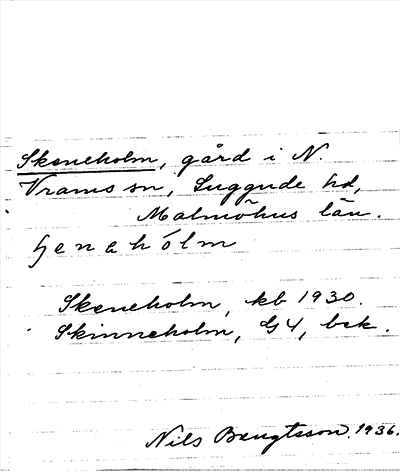 Skeneholm, gård i N.
Vrams sn, Luggude hd,
Malmöhus län.
henahólm
Skeneholm, kb 1930.
Skinneholm, GJ 4, bsk.
Nils Bengtsson. 1936.